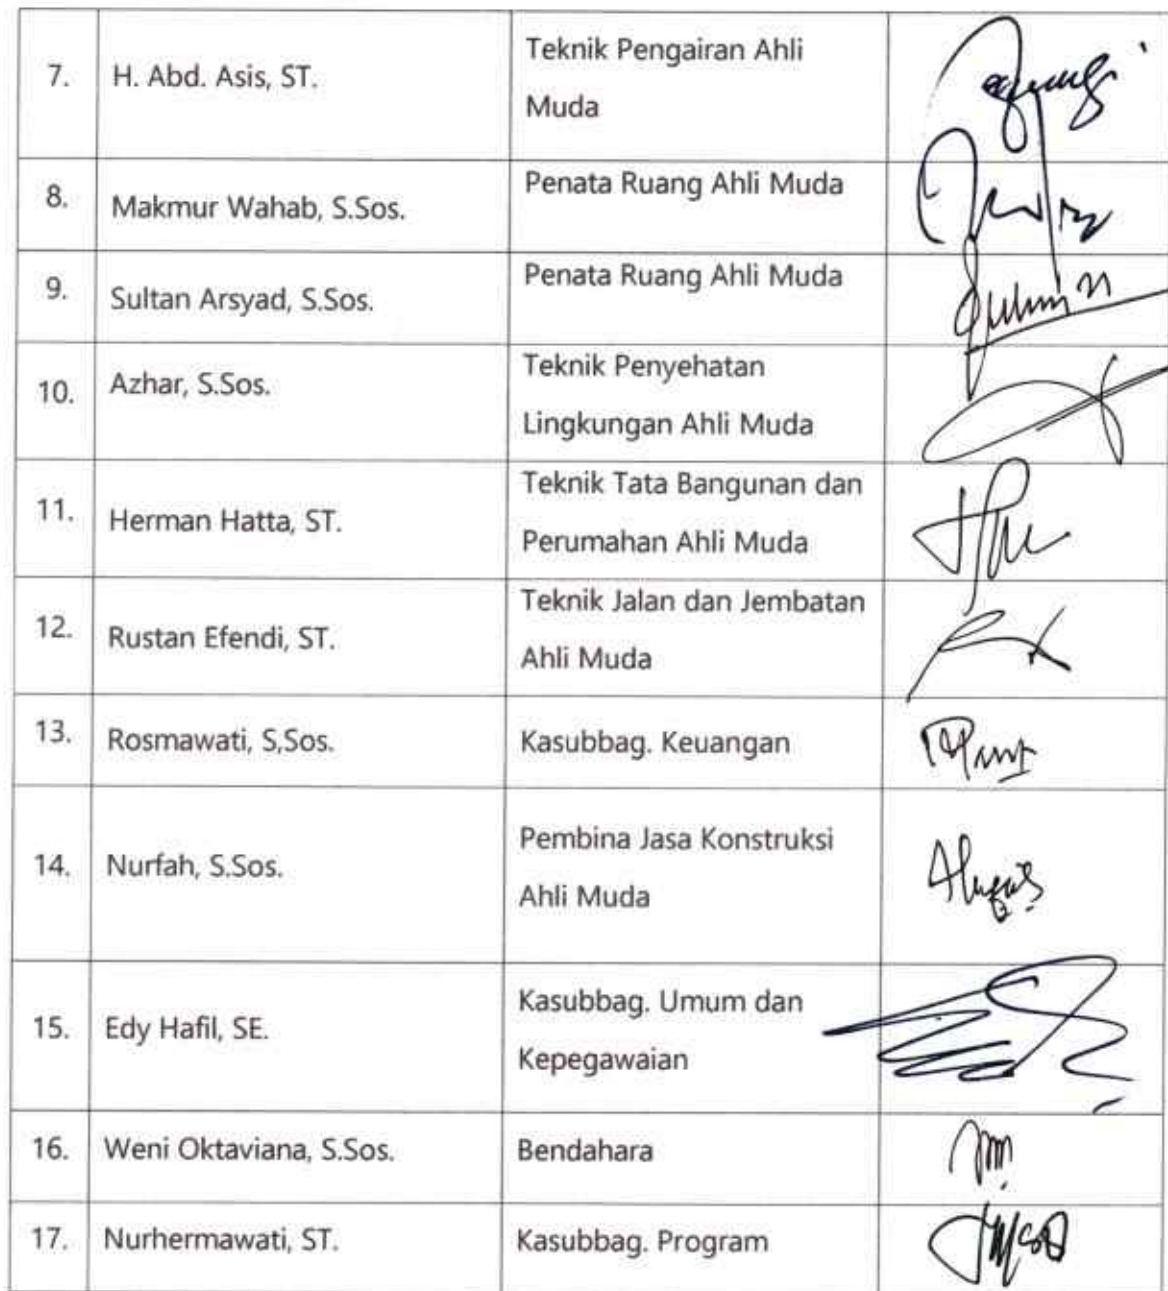 7.
H. Abd. Asis, ST.
Teknik Pengairan Ahli
Muda
8.
Makmur Wahab, S.Sos.
Penata Ruang Ahli Muda
9.
Sultan Arsyad, S.Sos.
Penata Ruang Ahli Muda
10.
Azhar, S.Sos.
Teknik Penyehatan
Lingkungan Ahli Muda
11.
Herman Hatta, ST.
Teknik Tata Bangunan dan
Perumahan Ahli Muda
12.
Rustan Efendi, ST.
Teknik Jalan dan Jembatan
Ahli Muda
13.
Rosmawati, S,Sos.
Kasubbag. Keuangan
14.
Nurfah, S.Sos.
Pembina Jasa Konstruksi
Ahli Muda
15.
Edy Hafil, SE.
Kasubbag. Umum dan
Kepegawaian
16.
Weni Oktaviana, S.Sos.
Bendahara
17.
Nurhermawati, ST.
Kasubbag. Program